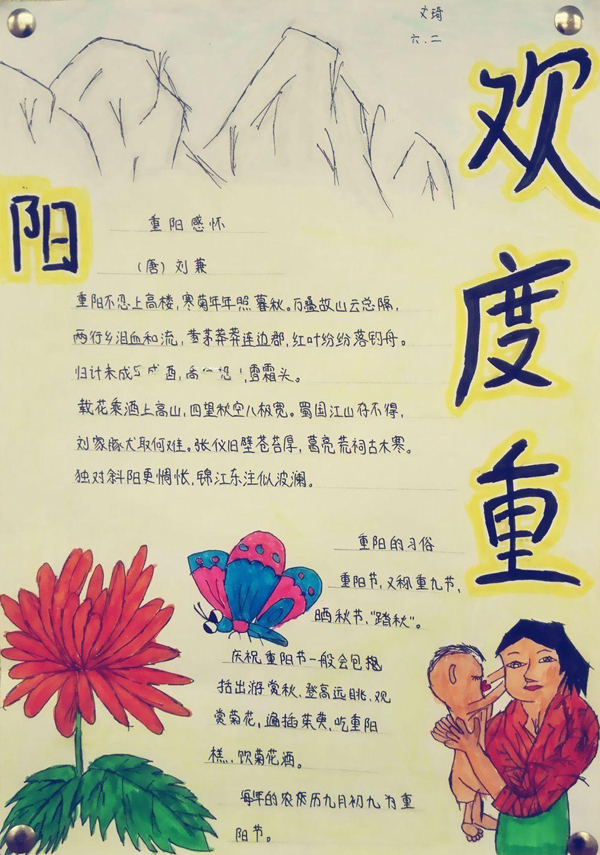 琦
六.二
欢
度
重
阳
重阳感怀
（唐）刘兼
重阳不忍上高楼，寒菊年年照暮秋。万叠故山云总隔，
两行乡泪血和流，黄茅莽莽连边郡，红叶纷纷落钓舟。
归计未成 雪霜头。
载花乘酒上高山，四望秋空八极宽。蜀国江山存不得，
刘家豚犬取何难。张仪旧壁苍苔厚，葛亮荒祠古木寒。
独对斜阳更惆怅，锦江东注似波澜。
重阳的习俗
重阳节，又称重九节，
晒秋节、“踏秋”。
庆祝重阳节一般会包括
括出游赏秋、登高远眺、观
赏菊花，遍插茱萸、吃重阳
糕、饮菊花酒。
每年的农历九月初九为重
阳节。